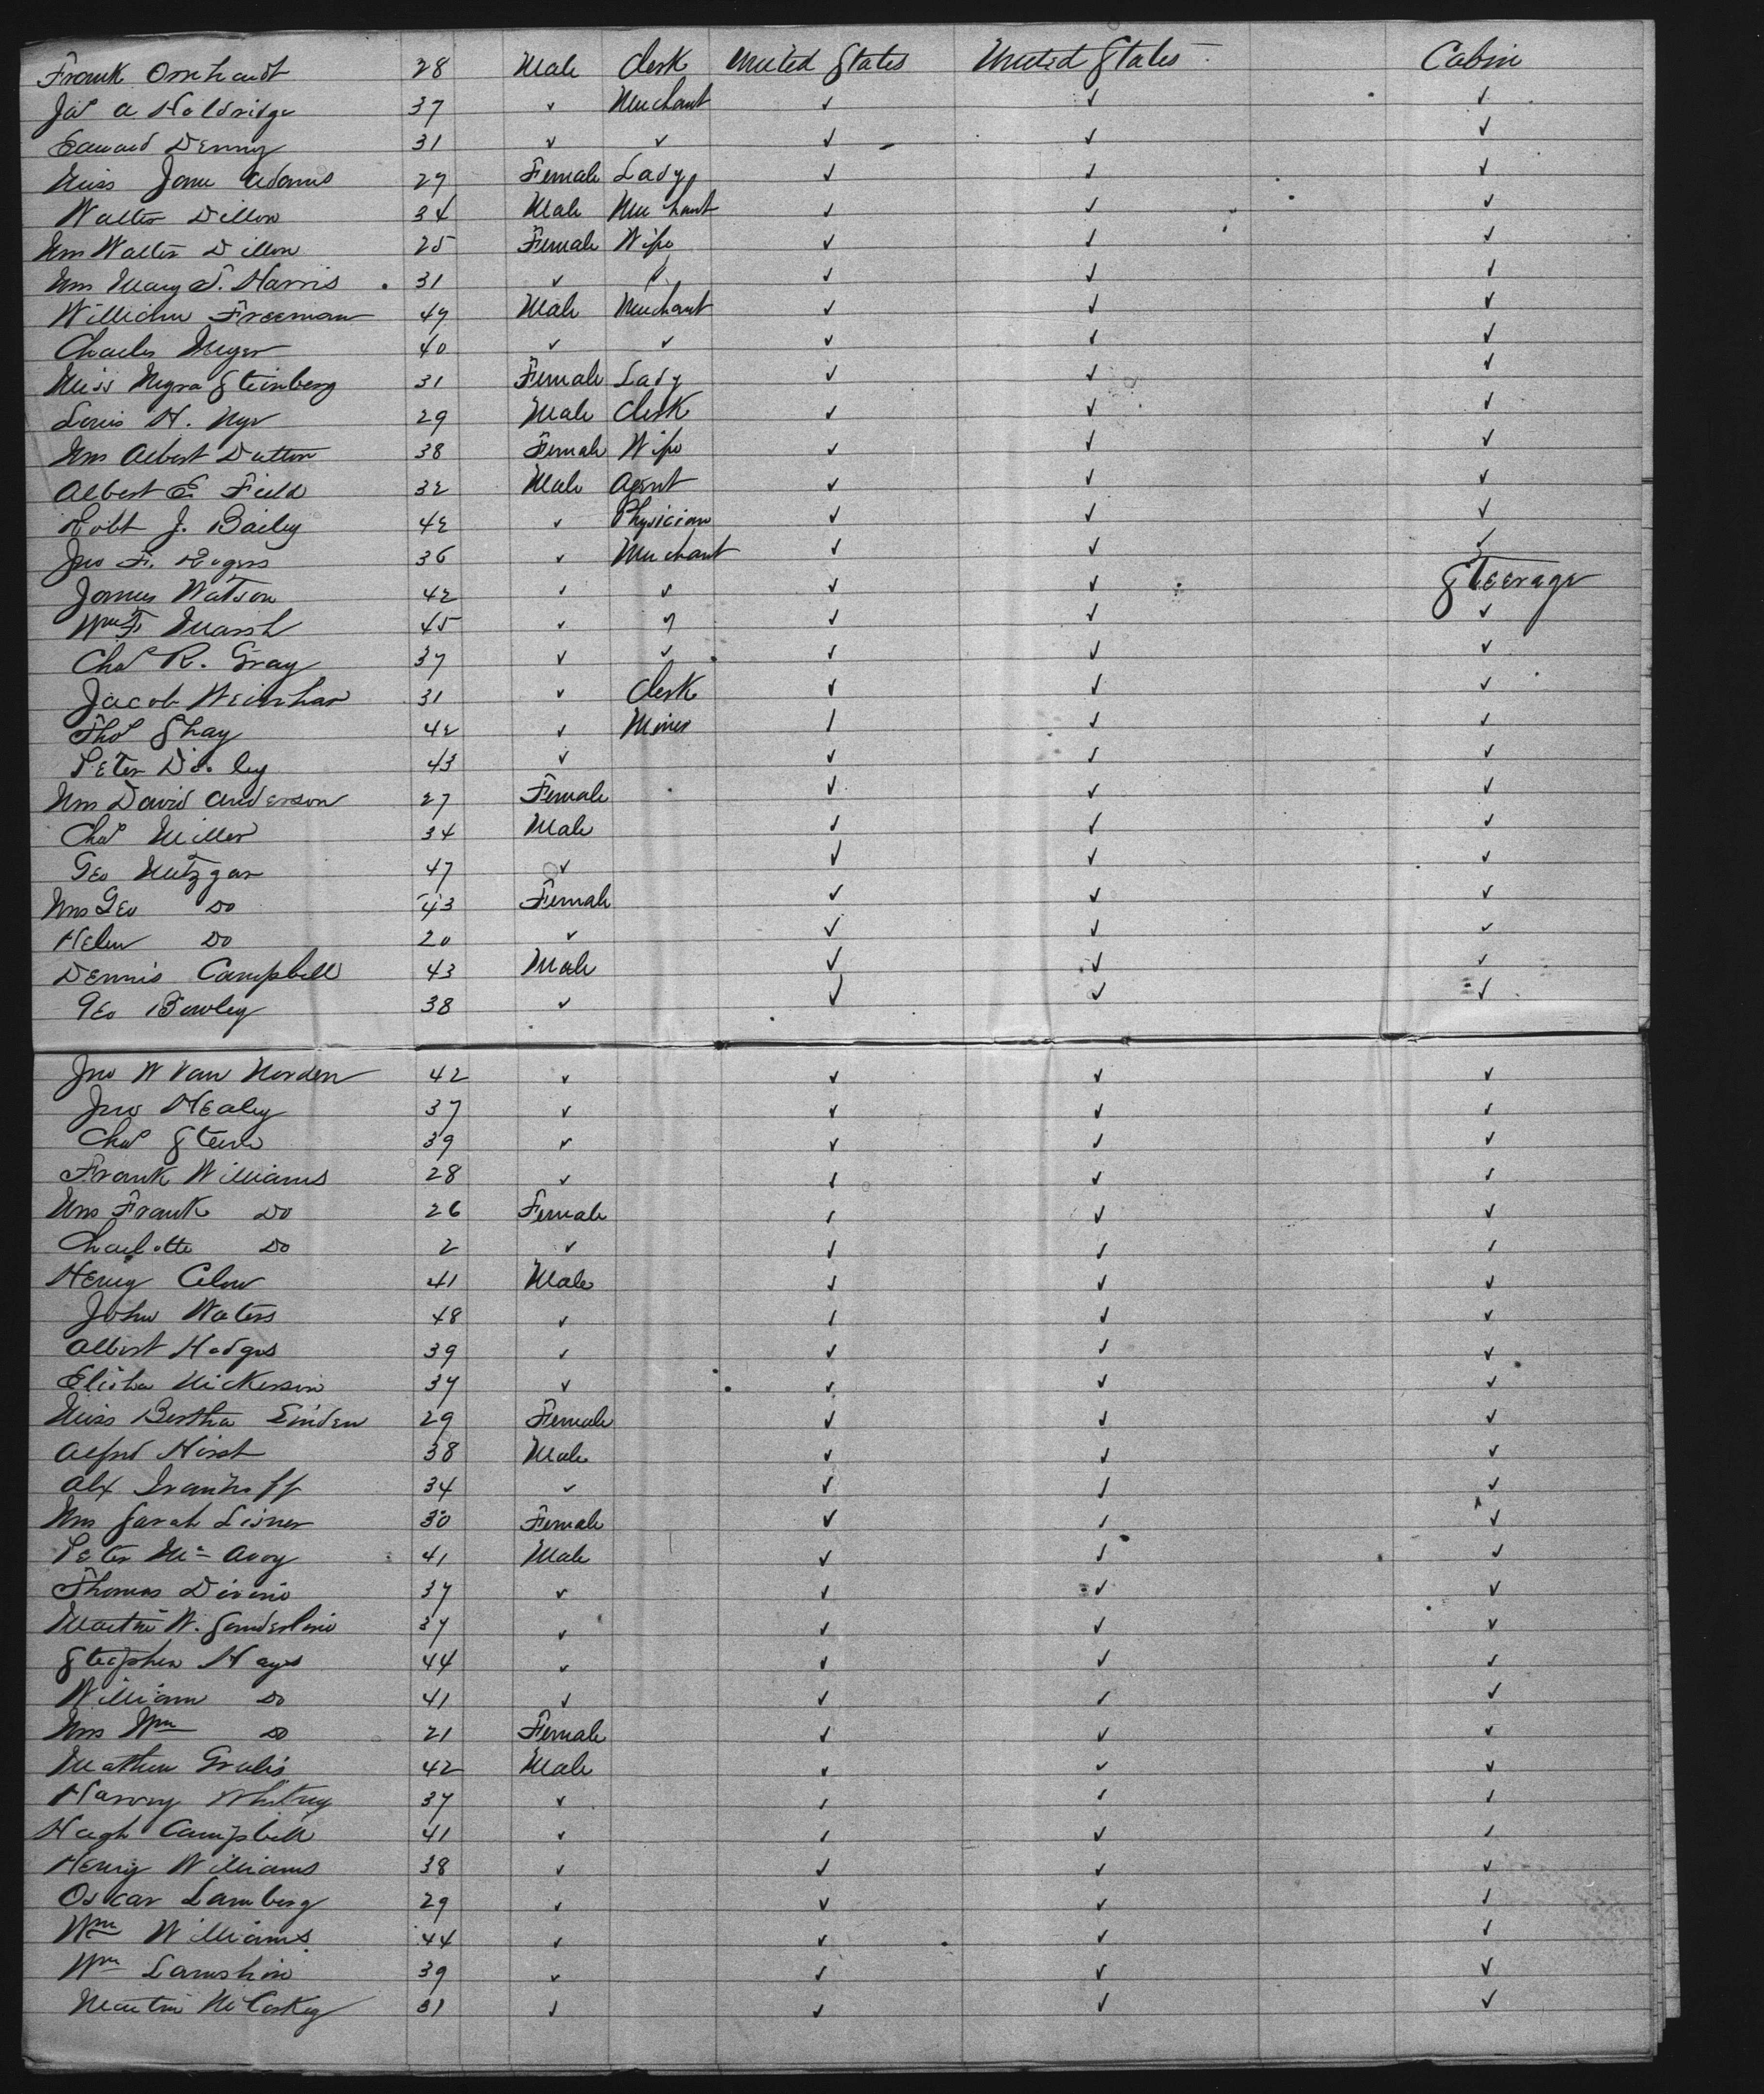 Frank Ornhardt 28 Male Clerk United States United States Cabin
Jas A Holdridge 37 ✓ Merchant ✓ ✓ ✓
Edward Denny 31 ✓ ✓ ✓ ✓ ✓
Miss Jane Adams 27 Female Lady ✓ ✓ ✓
Walter Dillon 34 Male Merchant ✓ ✓ ✓
Mrs Walter Dillon 25 Female Wife ✓ ✓ ✓
Mrs Mary S. Harris 31 ✓ ✓ ✓ ✓ ✓
William Freeman 47 Male Merchant ✓ ✓ ✓
Charles Meyer 40 ✓ ✓ ✓ ✓ ✓
Miss Myra Steinberg 31 Female Lady ✓ ✓ ✓
Louis H. Nye 29 Male Clerk ✓ ✓ ✓
Mrs Albert Dutton 38 Female Wife ✓ ✓ ✓
Albert E. Field 32 Male Agent ✓ ✓ ✓
Robt J. Bailey 42 ✓ Physician ✓ ✓ ✓
Jno F. Rogers 36 ✓ Merchant ✓ ✓ ✓
James Watson 42 ✓ ✓ ✓ ✓ Steerage
Wm F. Marsh 45 ✓ ✓ ✓ ✓ ✓
Chas R. Gray 37 ✓ ✓ ✓ ✓ ✓
Jacob 31 ✓ Clerk ✓ ✓ ✓
Thos Shay 42 ✓ Miner ✓ ✓ ✓
Peter Dooley 43 ✓ ✓ ✓ ✓
Mrs David Anderson 27 Female ✓ ✓ ✓
Chas Miller 34 Male ✓ ✓ ✓
Geo Metzgar 47 ✓ ✓ ✓ ✓
Mrs Geo Do 43 Female ✓ ✓ ✓
Helen Do 20 ✓ ✓ ✓ ✓
Dennis Campbell 43 Male ✓ ✓ ✓
Geo Bowley 38 ✓ ✓ ✓ ✓
Jno W Van Norden 42 ✓ ✓ ✓ ✓
Jno Healey 37 ✓ ✓ ✓ ✓
Chas Stein 39 ✓ ✓ ✓ ✓
Frank Williams 28 ✓ ✓ ✓ ✓
Mrs Frank Do 26 Female ✓ ✓ ✓
Charlotte Do 2 ✓ ✓ ✓ ✓
Henry Clow 41 Male ✓ ✓ ✓
John Waters 48 ✓ ✓ ✓ ✓
Albert Hodges 39 ✓ ✓ ✓ ✓
Elisha Nickerson 37 ✓ ✓ ✓ ✓
Miss Bertha Linden 29 Female ✓ ✓ ✓
Alfred Hirst 38 Male ✓ ✓ ✓
Alx 34 ✓ ✓ ✓ ✓
Mrs Sarah Lisner 30 Female ✓ ✓ ✓
Peter Mc Avoy 41 Male ✓ ✓ ✓
Thomas Divine 37 ✓ ✓ ✓ ✓
Martin W. Sunderline 37 ✓ ✓ ✓ ✓
Stephen Hays 44 ✓ ✓ ✓ ✓
William Do 41 ✓ ✓ ✓ ✓
Mrs Wm Do 21 Female ✓ ✓ ✓
Mathew 42 Male ✓ ✓ ✓
Harvey Whitney 37 ✓ ✓ ✓ ✓
Hugh Campbell 41 ✓ ✓ ✓ ✓
Henry Williams 38 ✓ ✓ ✓ ✓
Oscar Lamberg 29 ✓ ✓ ✓ ✓
Wm Williams 44 ✓ ✓ ✓ ✓
Wm 39 ✓ ✓ ✓ ✓
Martin McCoskey 31 ✓ ✓ ✓ ✓